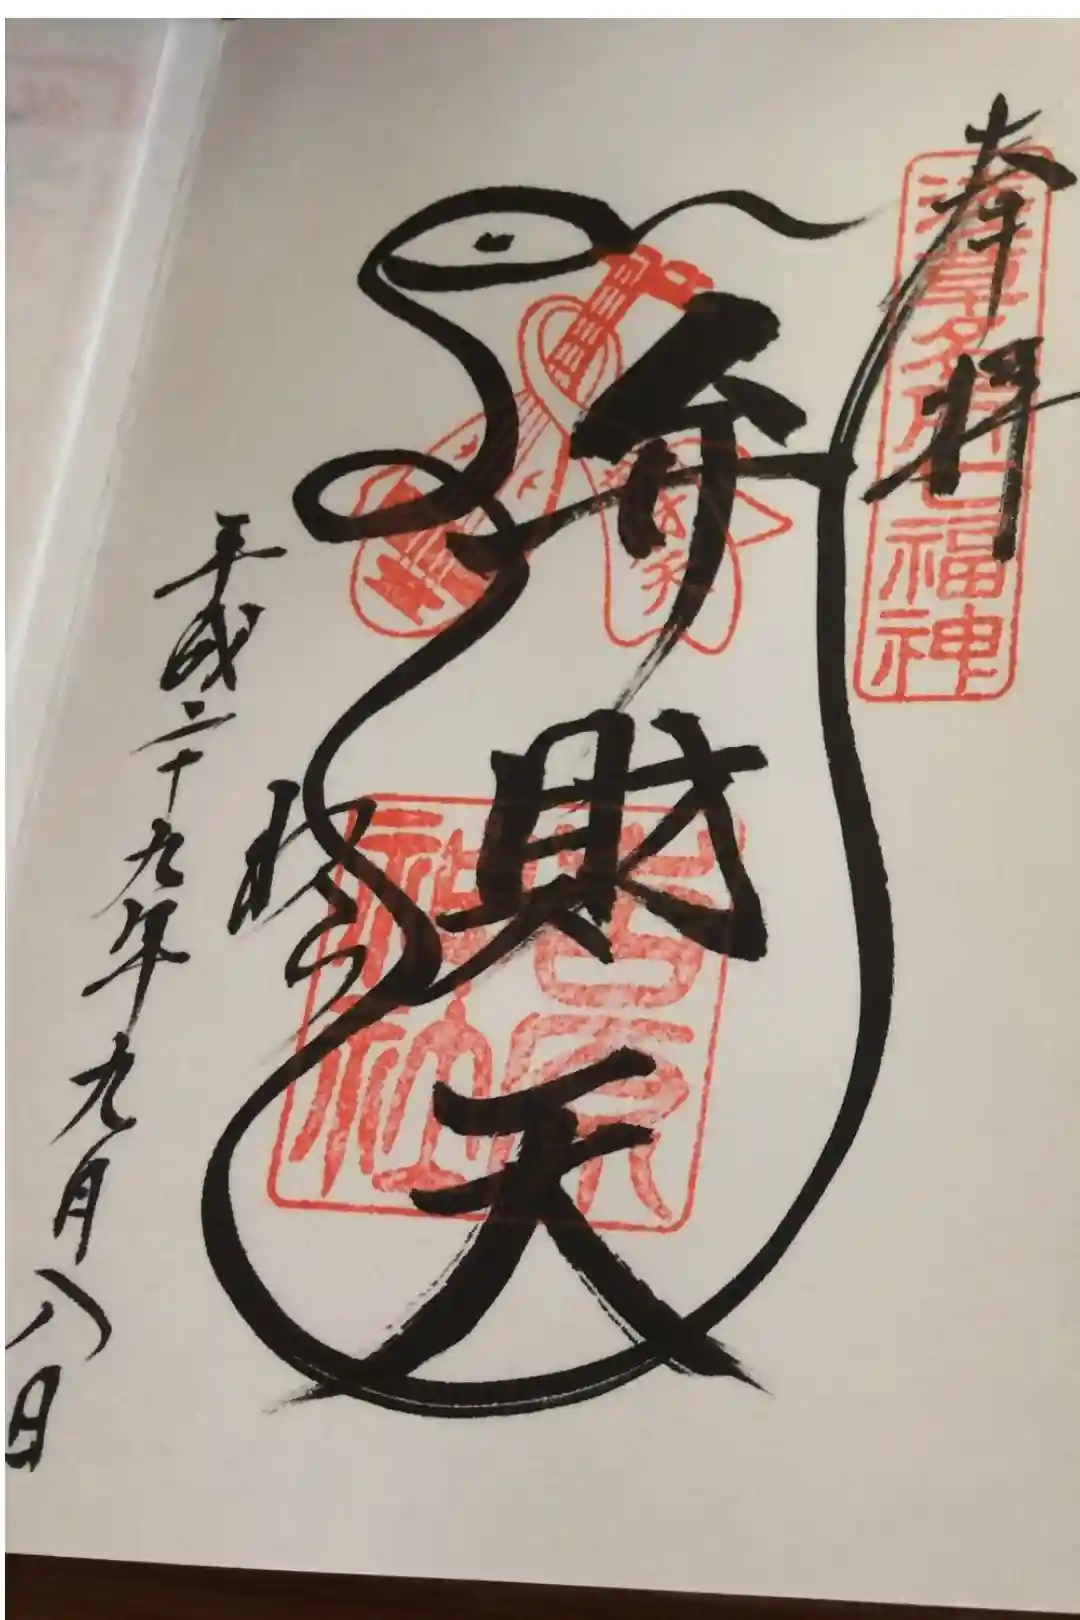 奉拝
浅草名所七福神
弁財天
吉原
神社
平成二十九年九月八日